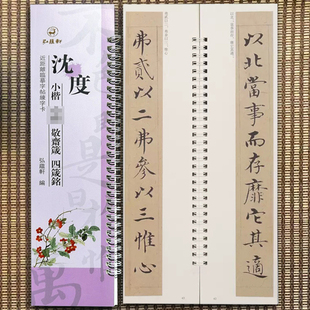 弘蘊軒
近距離臨摹字帖練字卡
沈度
小楷
敬齋箴 四箴銘
弘蘊軒 編
以北當事而存靡它其適
弗貳以二弗參以三惟心